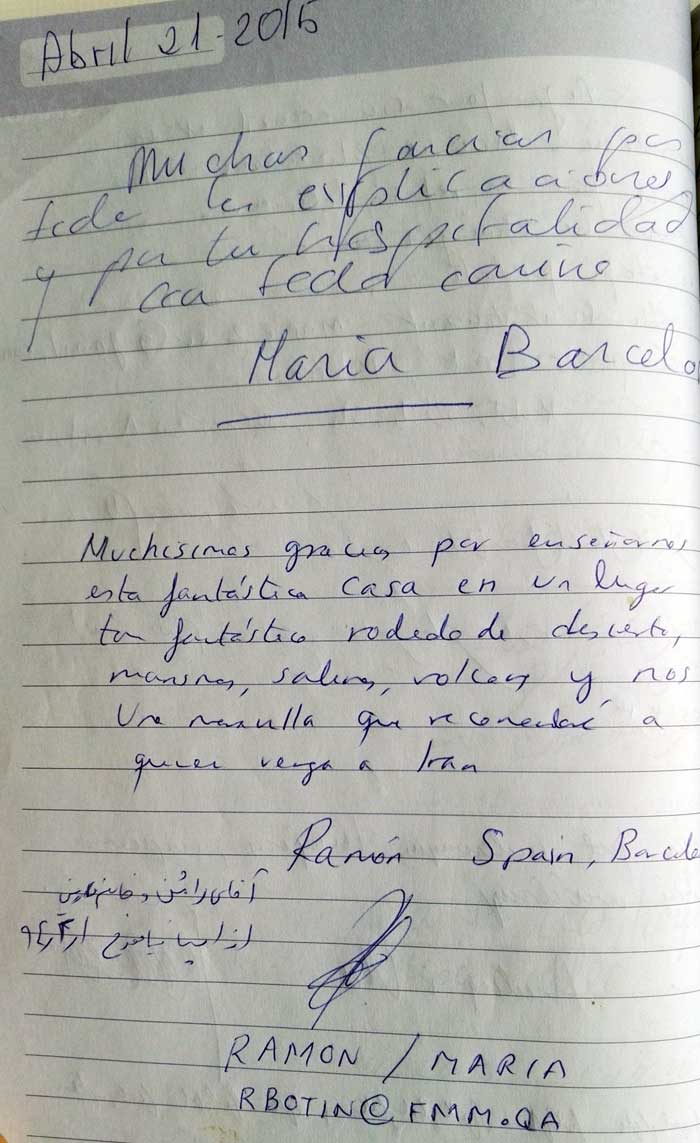 Abril 21-2015
Muchas gracias por
toda las explicaciones
y por tu hospitalidad
con todo cariño
Maria Barcelo
Muchisimas gracias por enseñarnos
esta fantástica casa en un lugar
tan fantástico rodeado de desierto,
salinas, volcanes y nos
Una que recomendaré a
quien venga a Iran
Ramón Spain, Barcelo
آقای رامن و خانم
از اسپانیا
RAMON / MARIA
RBOTIN@FMM.QA